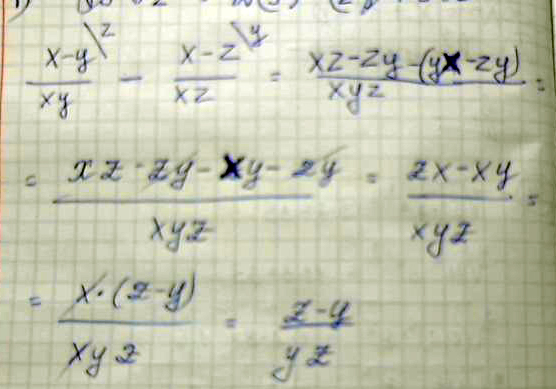 (x-y)/(xy) \z - (x-z)/(xz) \y = (xz-zy-(yx-zy))/(xyz) =
= (xz-zy-xy-zy)/(xyz) = (zx-xy)/(xyz) =
= (x·(z-y))/(xyz) = (z-y)/(yz)